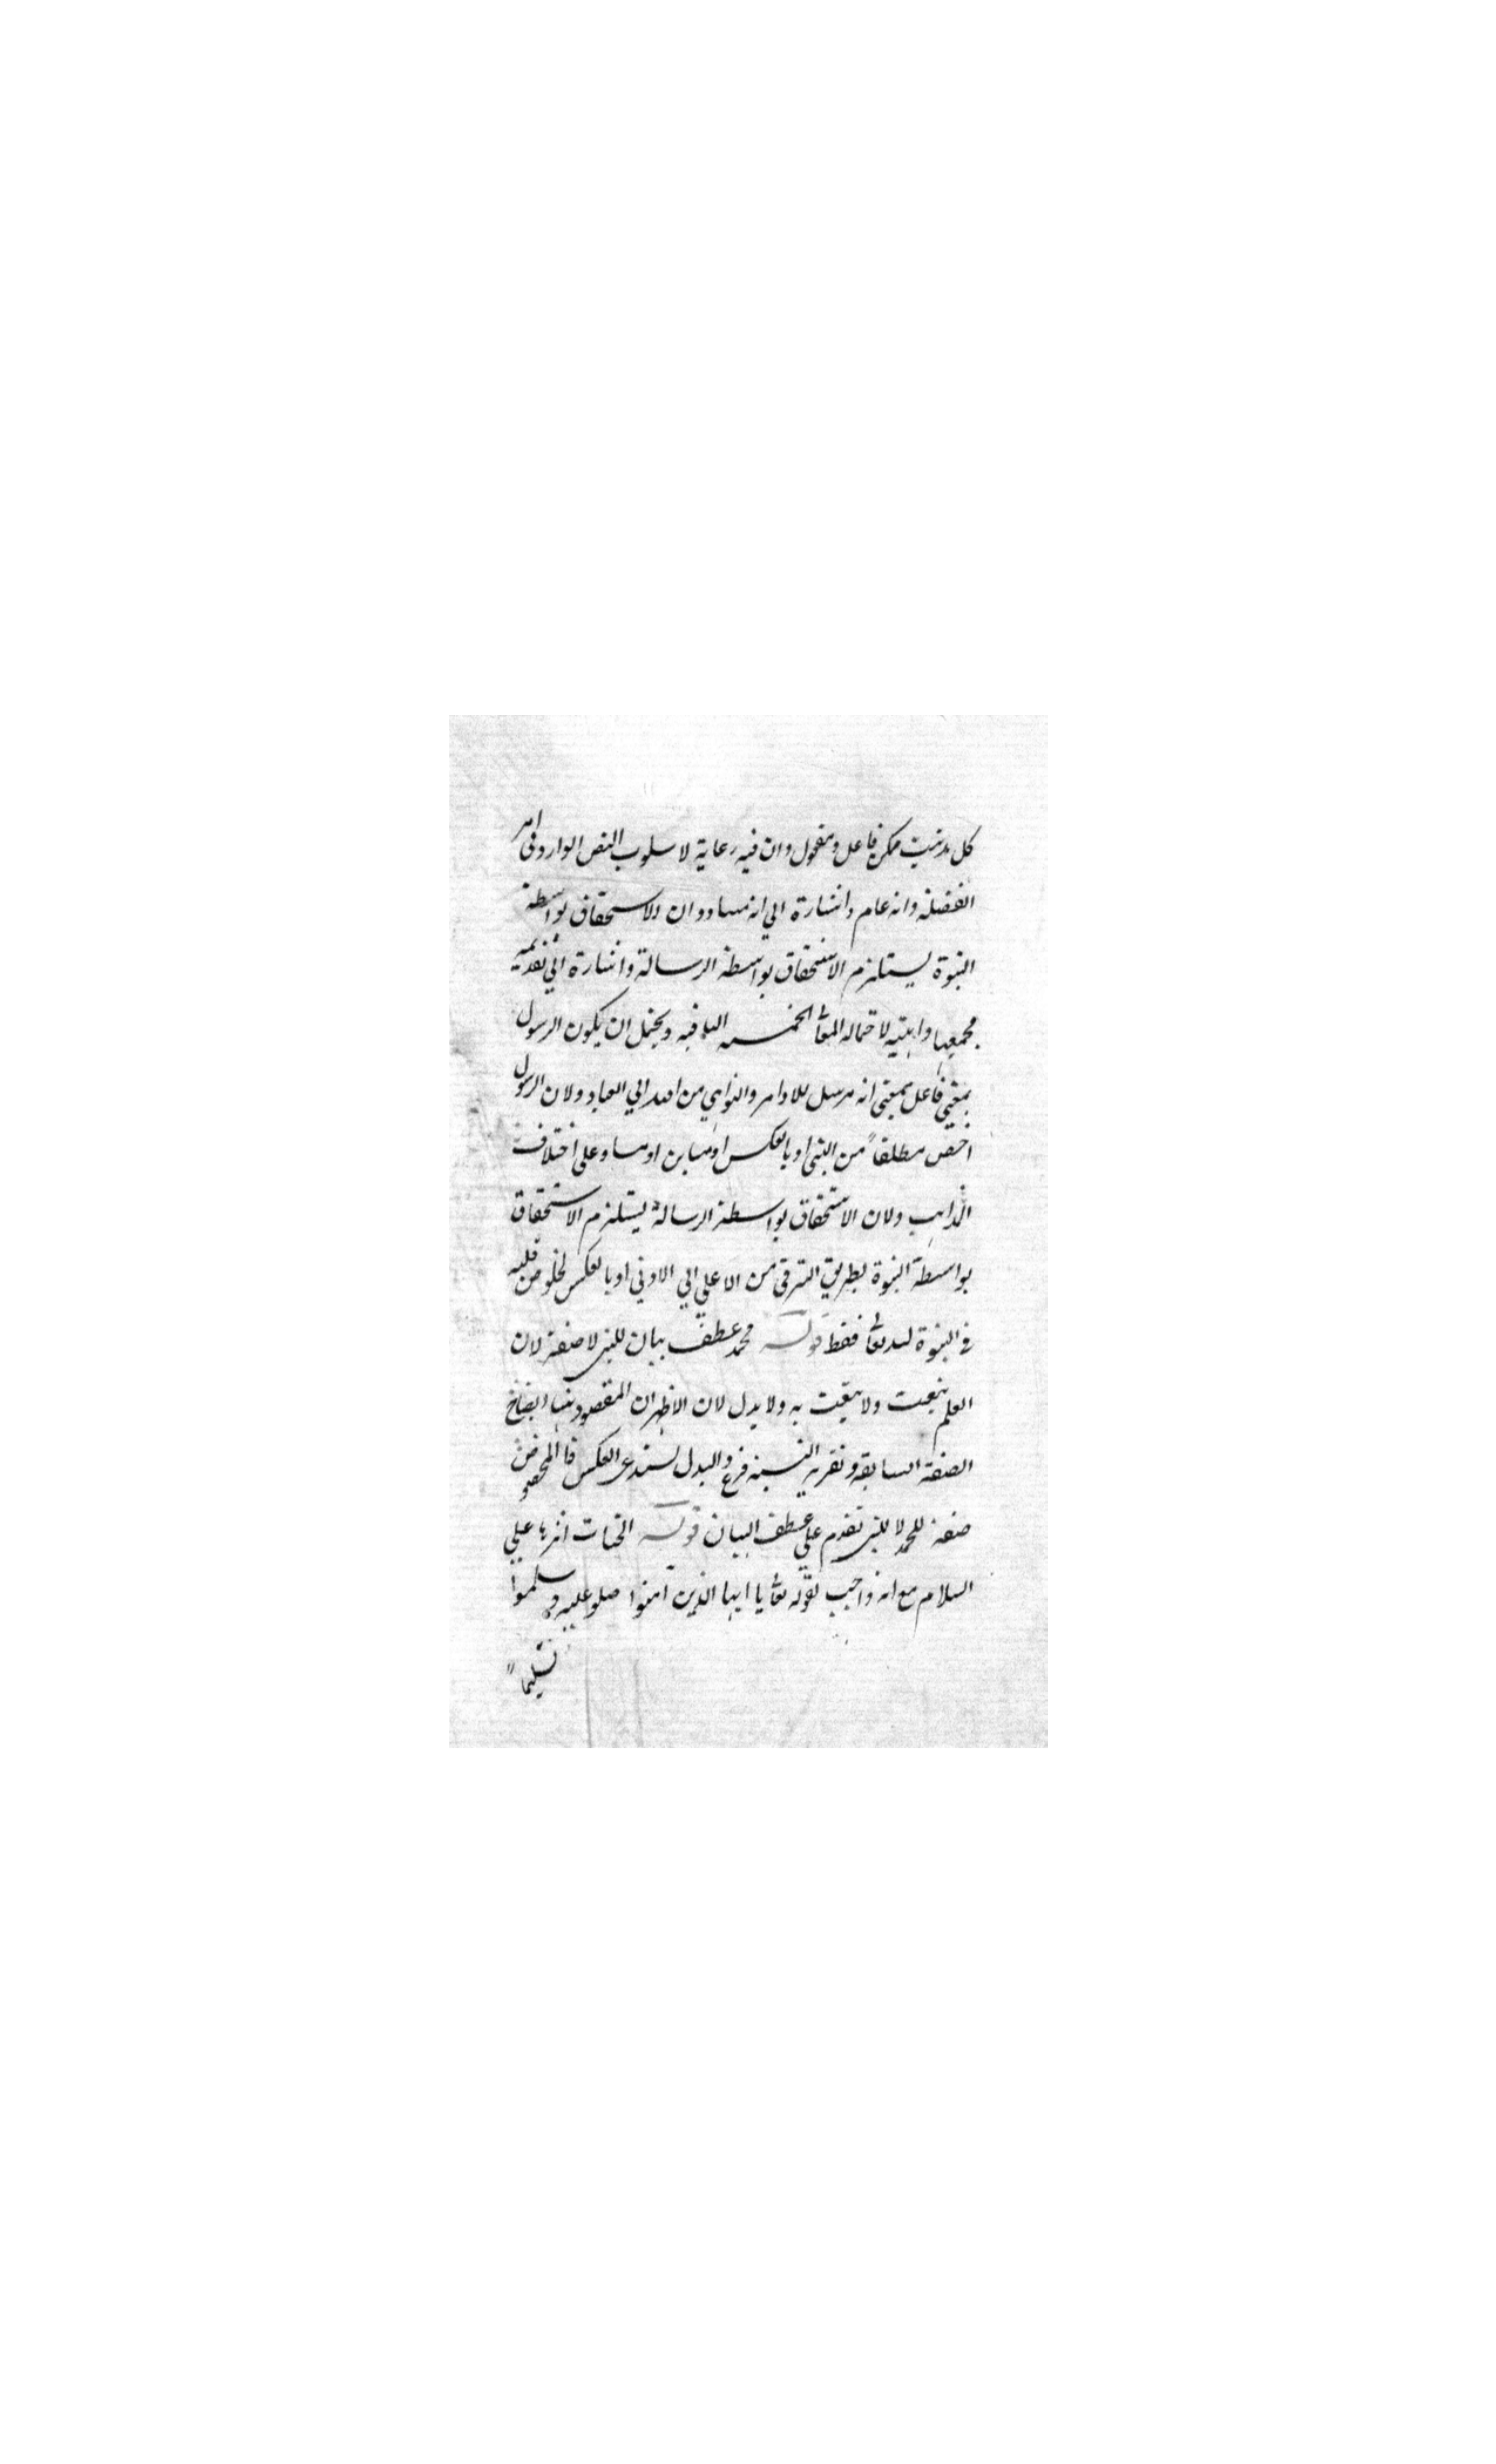 كل مرتبة ممكن فاعل ومفعول وان فيه رعاية لاسلوب النص الوارد في امر
الفضلة وانه عام واشارة الي انه مساو وان الاستحقاق بواسطة
النبوة يستلزم الاستحقاق بواسطة الرسالة واشارة الي تقديمه
لاحتماله المعا الخمسه اللا فيه ويحتمل ان يكون الرسول
بمعني فاعل بمعني انه مرسل للاوامر والنواهي من الله الي العباد ولان الرسول
اخص مطلقاً من النبي او بالعكس او مباين او مساو علي اختلاف
المذاهب ولان الاستحقاق بواسطة الرسالة يستلزم الاستحقاق
بواسطة النبوة بطريق الترقي من الاعلي الي الادني او بالعكس لخلوص قلبه
في النبوة لله تعا فقط قوله محمد عطف بيان للنبي لا صفة لان
العلم ينعت ولا ينعت به ولا بدل لان الاظهر ان المقصود ايضاح
الصفة السابقة وتقرير النسبة فرع والبدل يستدعي العكس فا المخصوص
صفة للحمد لا للنبي تقدم علي عطف البيان قوله التحيات اثرها علي
السلام مع انه واجب لقوله تعا يا ايها الذين آمنوا صلو عليه وسلموا
تسليما